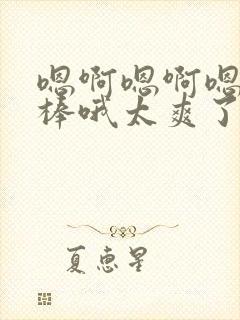 嗯啊嗯啊嗯
棒哦太爽了
夏惠星